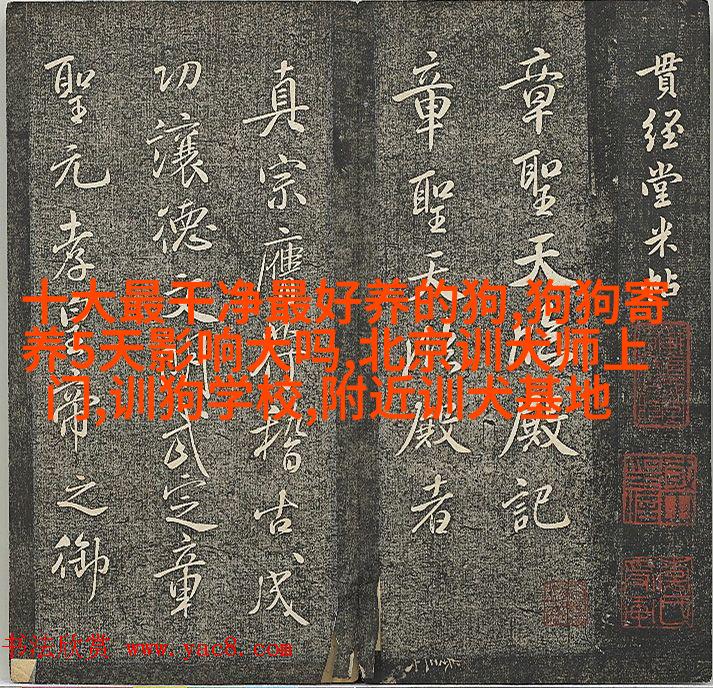 貫經堂米帖
章聖天臨殿記
章聖天臨殿者
真宗膺符稽古成
功讓德文明武定章
聖元孝皇帝之御
十大最干净最好养的狗,狗狗寄
养5天影响大吗,北京训犬师上
门,训狗学校,附近训犬基地
书法欣赏 www.yac8.com